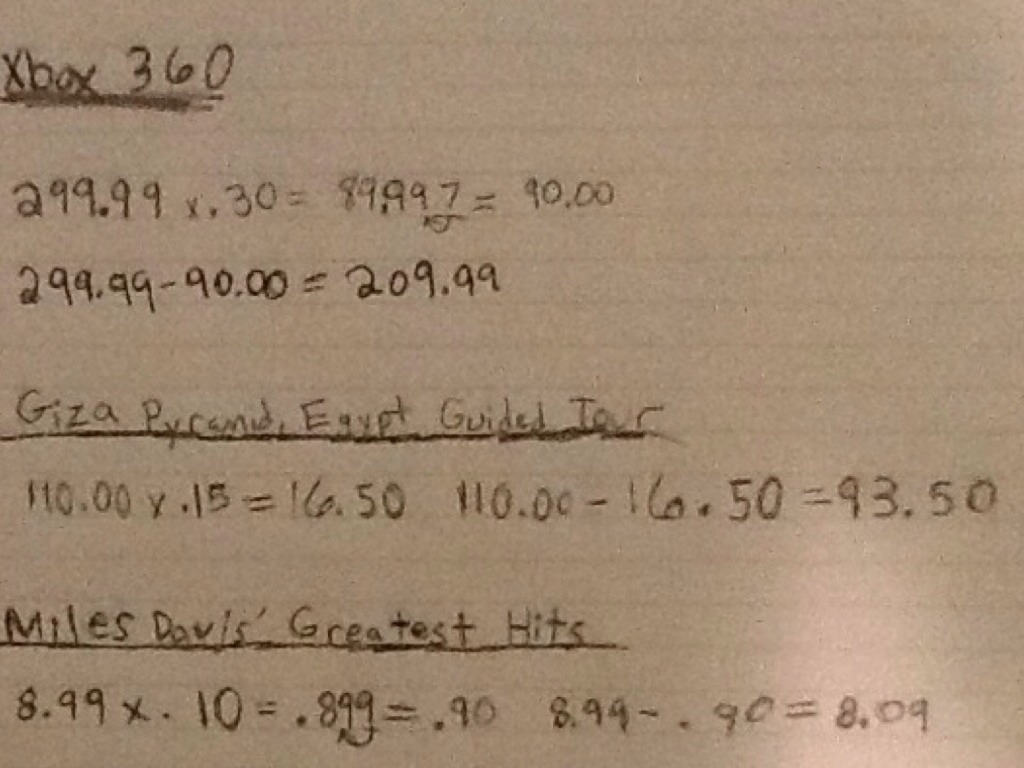 Xbox 360
299.99 x .30 = 89.997 = 90.00
299.99 - 90.00 = 209.99
Giza Pyramid, Egypt Guided Tour
110.00 x .15 = 16.50 110.00 - 16.50 = 93.50
Miles Davis' Greatest Hits
8.99 x .10 = .899 = .90 8.99 - .90 = 8.09